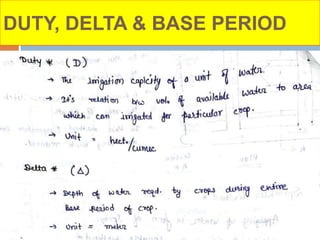 DUTY, DELTA & BASE PERIOD
Duty * (D)
→ The irrigation capicity of a unit of water.
→ It's relation b/w volm of available water to area
which can irrigated for particular crop.
→ Unit = hect./cumec
Delta * (Δ)
→ Depth of water reqd. by crops during entire
Base period of crop.
→ Unit = meter